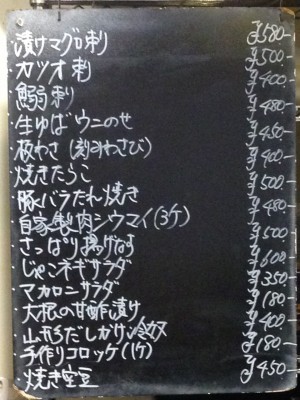 漬けマグロ刺 ¥580-
カツオ刺
鰯刺 ¥400-
生ゆばウニのせ ¥480-
板わさ(刻みわさび) ¥450-
焼きたらこ ¥400-
豚バラたれ焼き ¥500-
自家製肉シウマイ(3ケ) ¥480-
さっぱり揚げなす ¥500-
じゃこネギサラダ ¥600-
マカロニサラダ ¥350-
大根の甘酢漬け ¥180-
山形だしかけ冷奴 ¥400-
手作りコロッケ(1ケ) ¥180-
焼き空豆 ¥450-